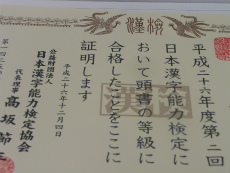 漢検
平成二十六年度第二回
日本漢字能力検定に
おいて頭書の等級に
合格したことをここに
証明します
平成二十六年十二月四日
公益財団法人
日本漢字能力検定協会
代表理事 髙坂節三
漢検